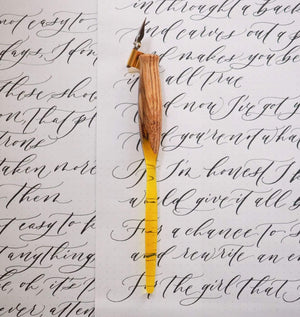 not easy to
days, I don
these sho
on that

more
them
easy to
anything
oh, it's
ever atten
in through a back
And carves out a s
makes you be
all true
And now I've got
you're not wha
I'm honest I
would give it all
For a chance to s
and rewrite an en
For the girl that I